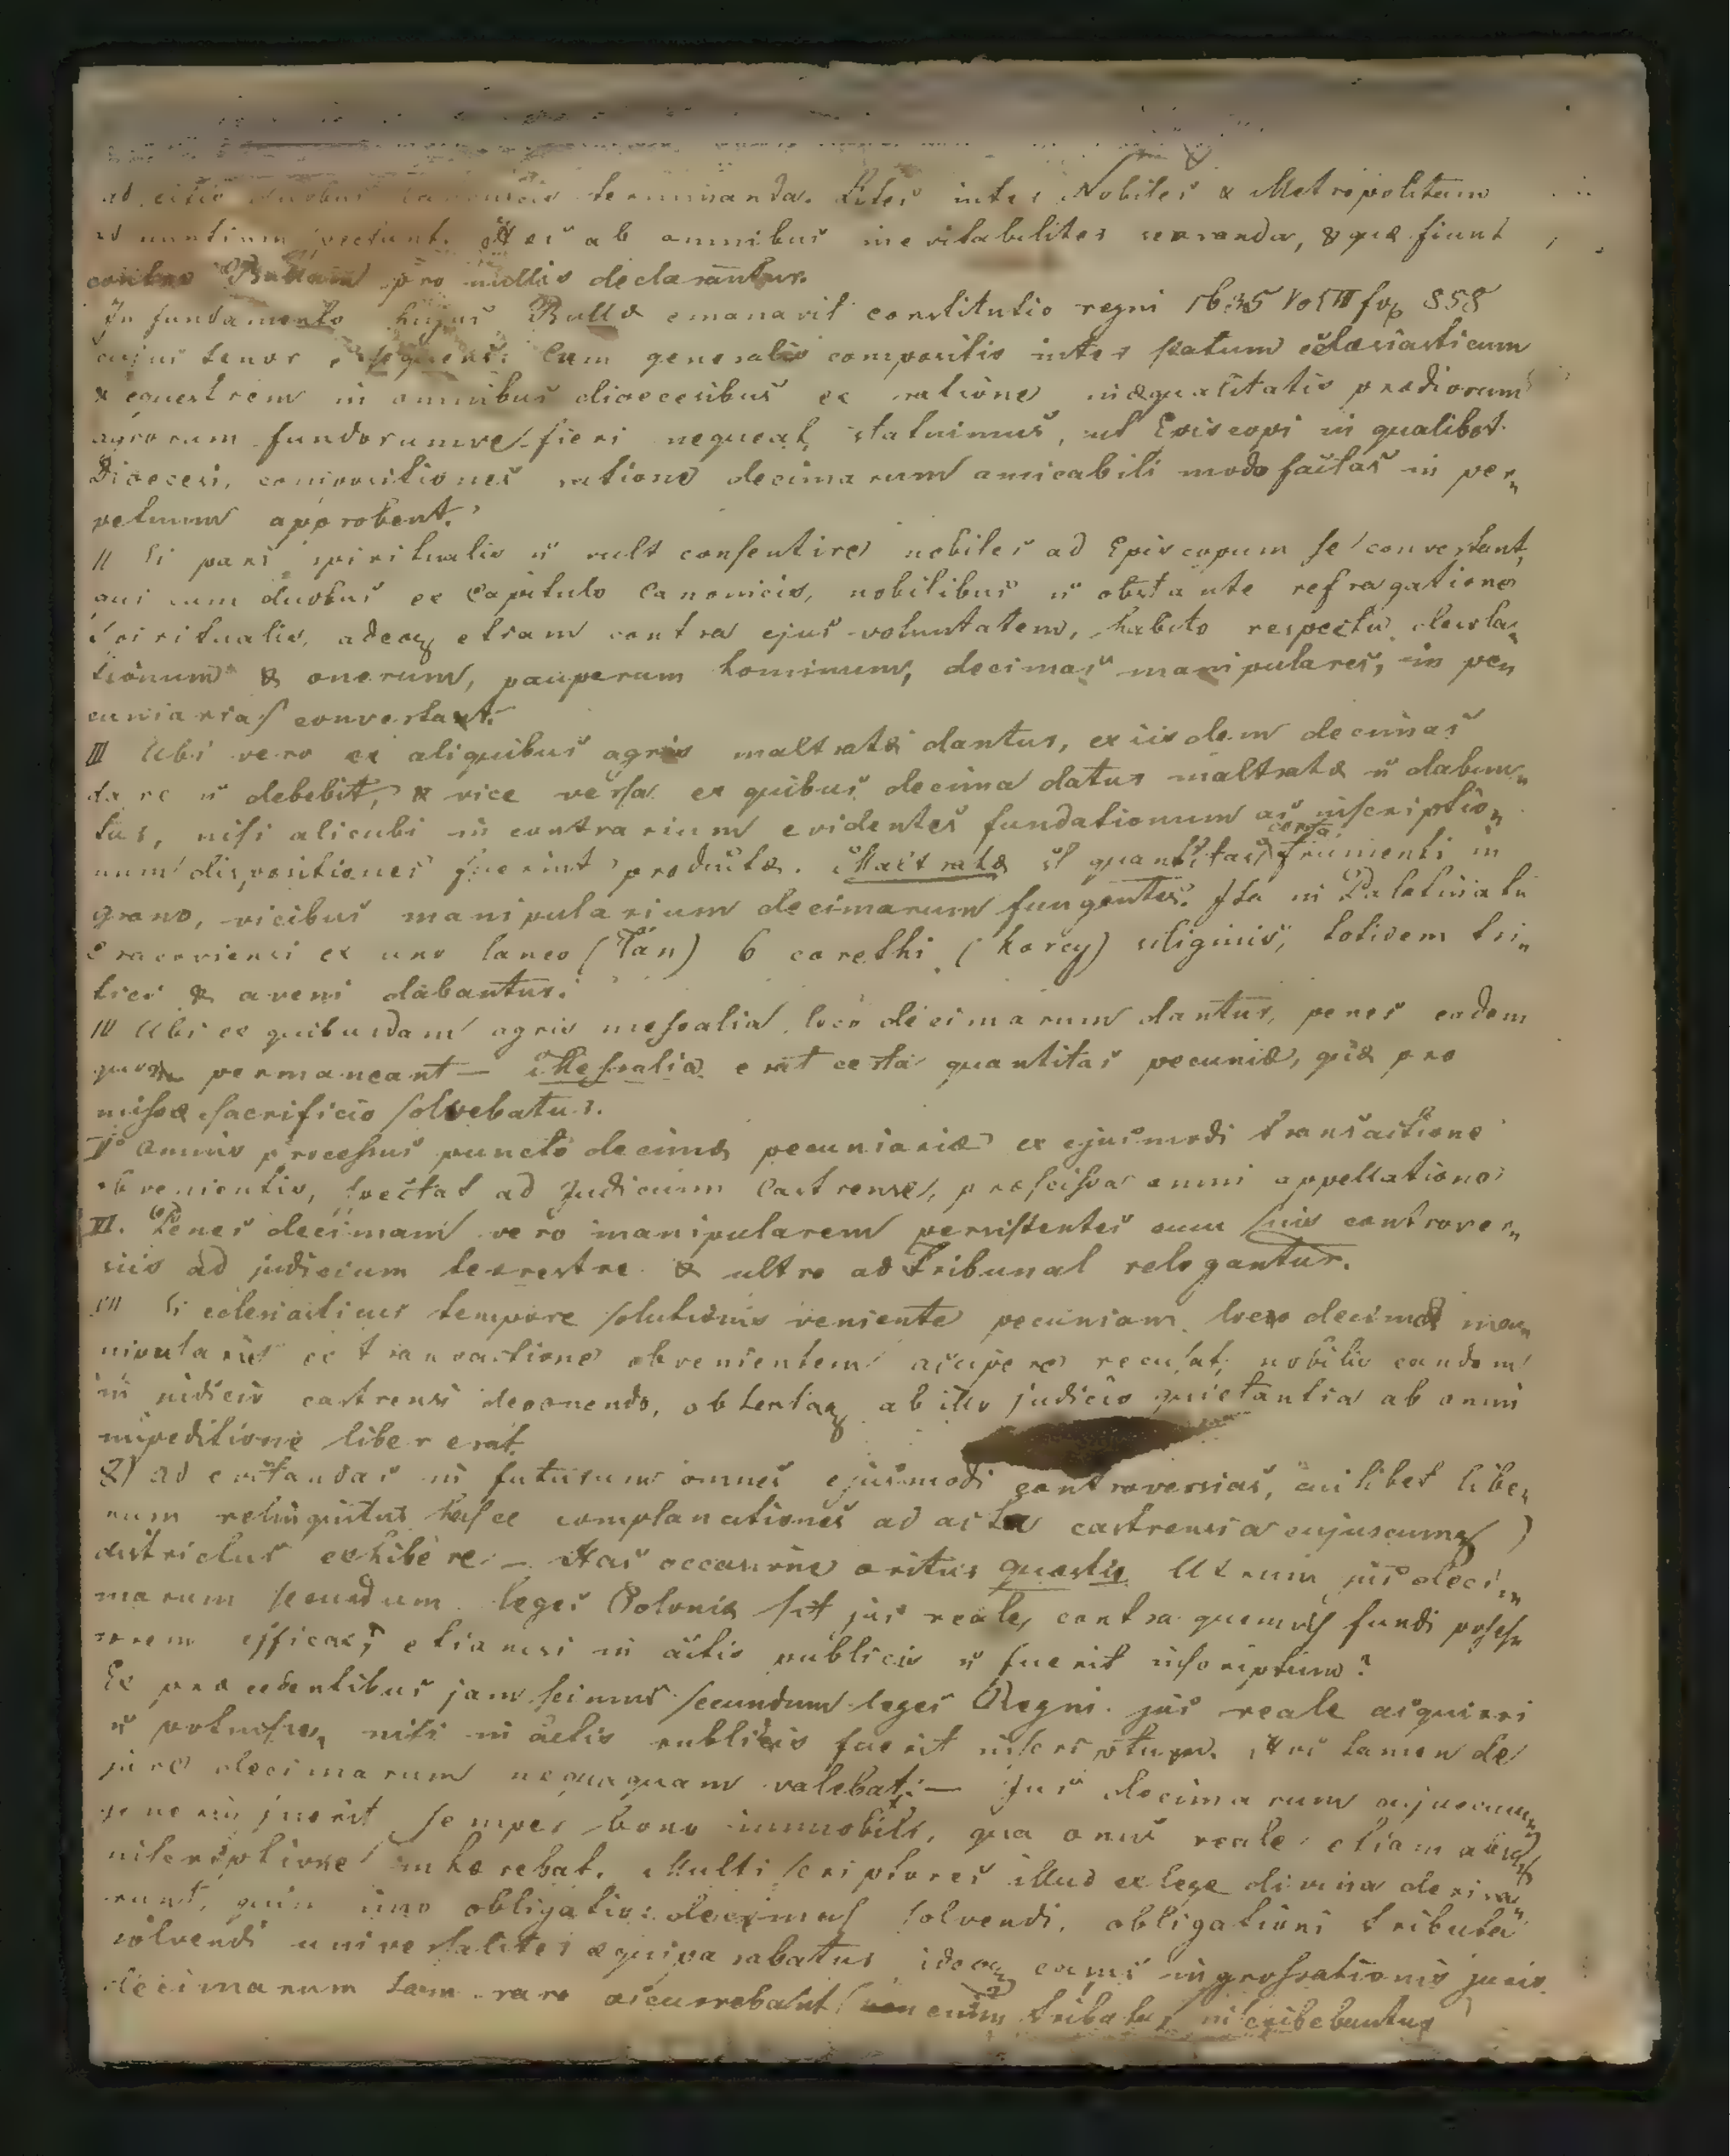 terminanda. Lites inter Nobiles & Metropolitam
ad nuntium Hæc ab omnibus inevitabiliter servanda, & quæ fiunt
contra Bullam pro nullis declarantur.
In fundamento hujus Bullæ emanavit constitutio regni 1635 Vol III fol 858
cujus tenor e sequens: Cum generalis compositio inter statum eclesiasticum
& equestrem in omnibus dioecesibus ex ratione inæqualitatis prædiorum
agrorum fundorumve fieri nequeat, statuimus, ut Episcopi in qualibet
Dioecesi, compositiones ratione decimarum amicabili modo factas in per„
petuum approbent.
II Si pars spiritualis n̄ vult consentire nobiles ad Episcopum se convertant,
qui cum duobus ex Capitulo Canonicis, nobilibus n̄ obstante refragatione
Spiritualis, adeoq etiam contra ejus voluntatem, habito respectu devasta„
tionum & onerum, pauperum hominum, decimas manipulares, in pe„
cuniarias convertant.
III Ubi vero ex aliquibus agris maltratæ dantur, ex iisdem decimas
dare n̄ debebit, & vice versa ex quibus decima datur maltratæ n̄ dabun„
tur, nisi alicubi in contrarium evidentes fundationum ac inscriptio„
num dispositiones fuerint productæ. Maltratæ st quantitas certa frumenti in
grano, vicibus manipularium decimarum fungentes. Ita in Palatinatu
Cracoviensi ex uno laneo (Łan) 6 corethi (korcy) siliginis, totidem tri„
tici & aveni dabantur.
IV Ubi ex quibusdam agris messalia loco decimarum dantur, penes eadem
quoq permaneant — Messalia erat certa quantitas pecuniæ, quæ pro
missæ sacrificio solvebatur.
V Omnis processus puncto decimæ pecuniariæ ex ejusmodi transactione
obvenientis, spectat ad Judicium Castrense, præscissa omni appellatione
VI. Penes decimam vero manipularem persistentes cum suis controver„
siis ad judicium terrestre & ultro ad Tribunal relegantur.
VII Si eclesiasticus tempore solutionis veniente pecuniam loco decimæ ma„
nipularis ex transactione obvenientem accipere recusat, nobilis eandem
in judicio castrensi deponendo, obtentaq ab illo judicio quietantia ab omni
impeditione liber erat.
8) Ad evitandas in futurum omnes ejusmodi controversias, cuilibet libe„
rum relinquitur hasce complanationes ad acta castrensia cujuscumq
districtus exhibere. — Hac occasione oritur quæstio Utrum jus deci„
marum secundum leges Poloniæ sit jus reale, contra quemvis fundi posses„
sorem efficax, etiamsi in actis publicis n̄ fuerit inscriptum?
Ex præcedentibus jam scimus secundum leges Regni jus reale acquiri
n̄ potuisse, nisi in actis publicis fuerit inscriptum. Hoc tamen de
jure decimarum nequaquam valebat: — Jus decimarum cujuscum„
generis fuerit semper bono immobili, qua onus reale etiam absq
inscriptione inhærebat. Multi scriptores illud ex lege divina deriva„
runt, quin imo obligatio decimas solvendi, obligationi tributa
solvendi universaliter æquiparabatur ideoq casus ingrossationis juris
decimarum tam raro occurrebant enim tributa inscribebantur